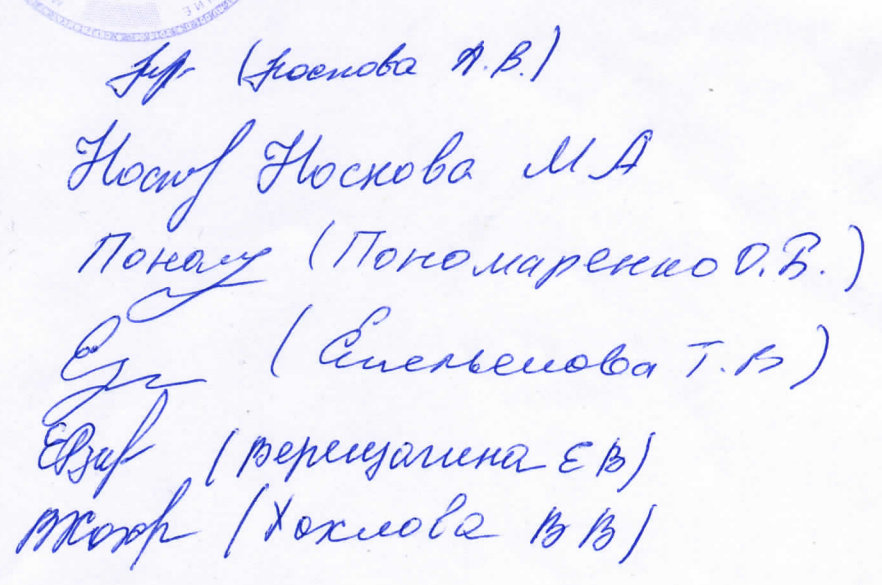 (Носкова А.В.)
Носкова М А
Понам (Пономаренко О.В.)
( Емельенова Т.В )
(Верещагина Е В)
(Хохлова В В)